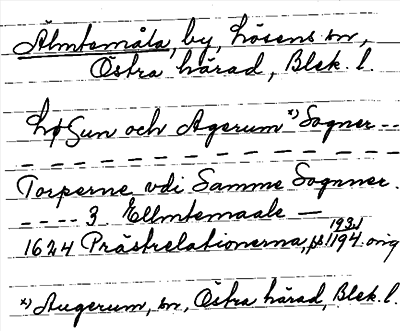 Älmtemåla, by, Lösens sn,
Östra härad, Blek. l.
Løsun och Agerum x) Sogner --
Torperne vdi Samme Sognner.
---- 3 Ellmtemaale —
1931
1624 Prästrelationerna, 1194 orig
x) Augerum, sn, Östra härad, Blek. l.